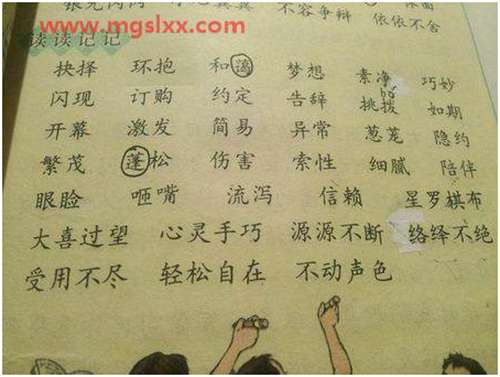 不容争辩 依依不舍
www.mgslxx.com
读读记记
抉择 环抱 和谐 梦想 素净 巧妙
bō
闪现 订购 约定 告辞 挑拨 如期
开幕 激发 简易 异常 葱茏 隐约
繁茂 蓬松 伤害 索性 细腻 陪伴
眼睑 咂嘴 流泻 信赖 星罗棋布
大喜过望 心灵手巧 源源不断 络绎不绝
受用不尽 轻松自在 不动声色